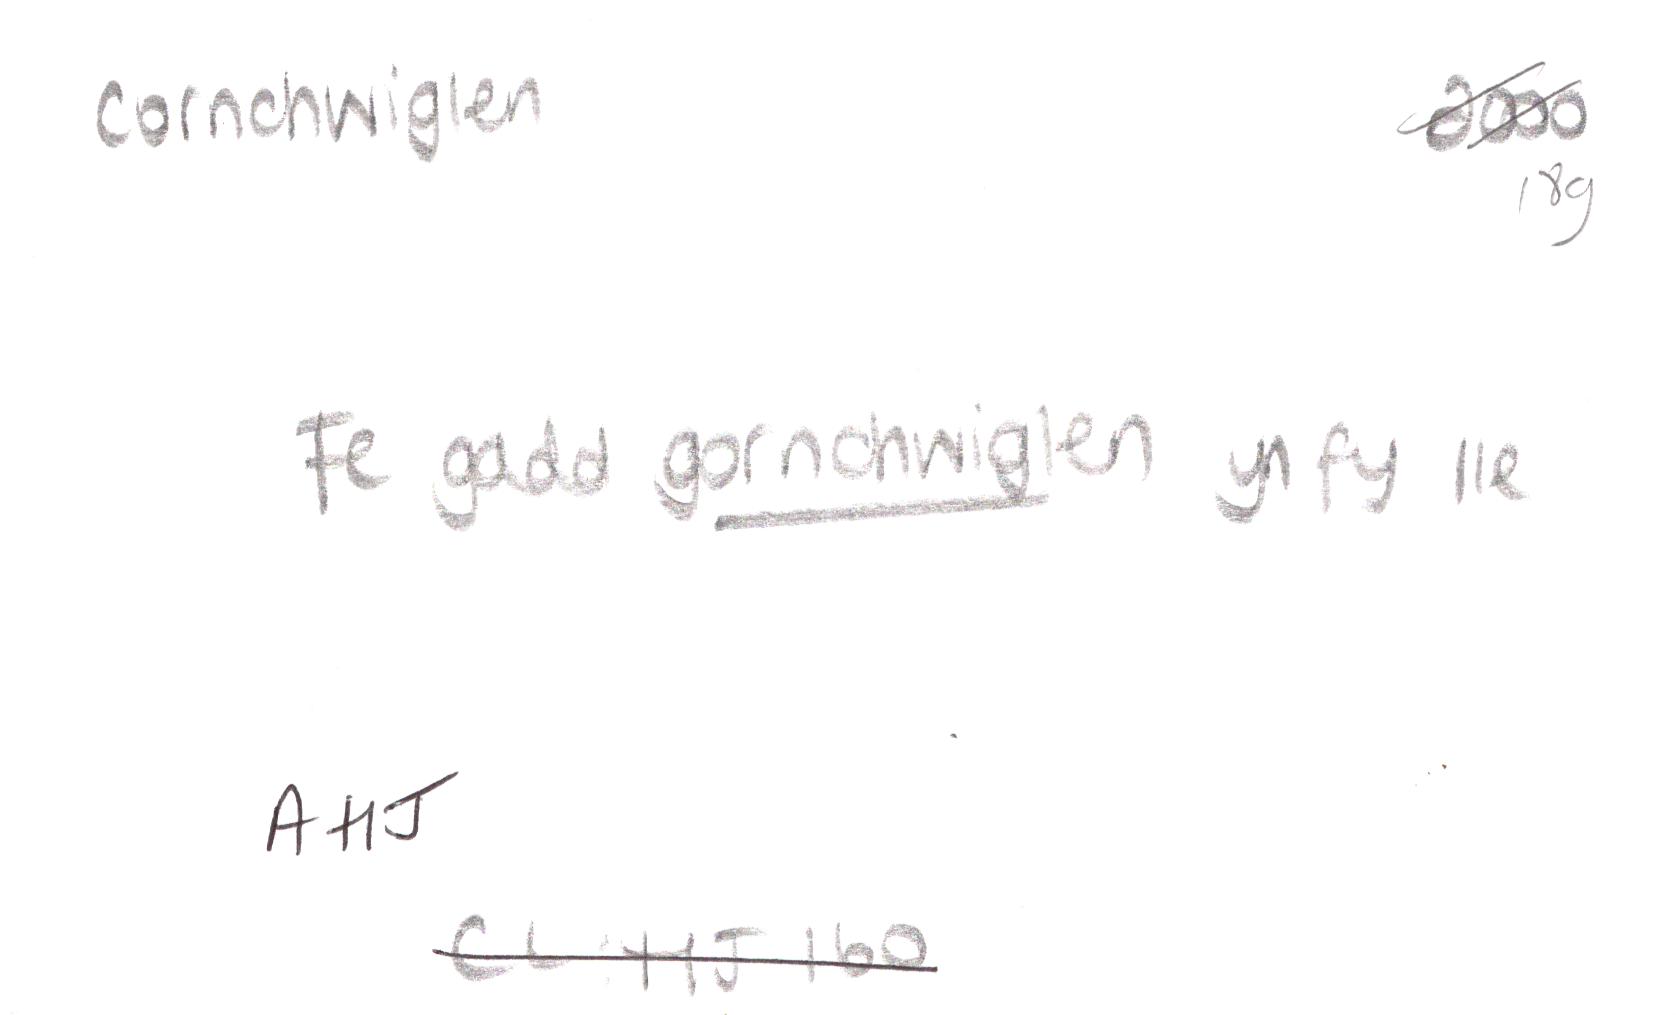 Cornchwiglen 2000
189
Fe gadd gornchwiglen yn fy lle
AHJ
CLlHJ 160